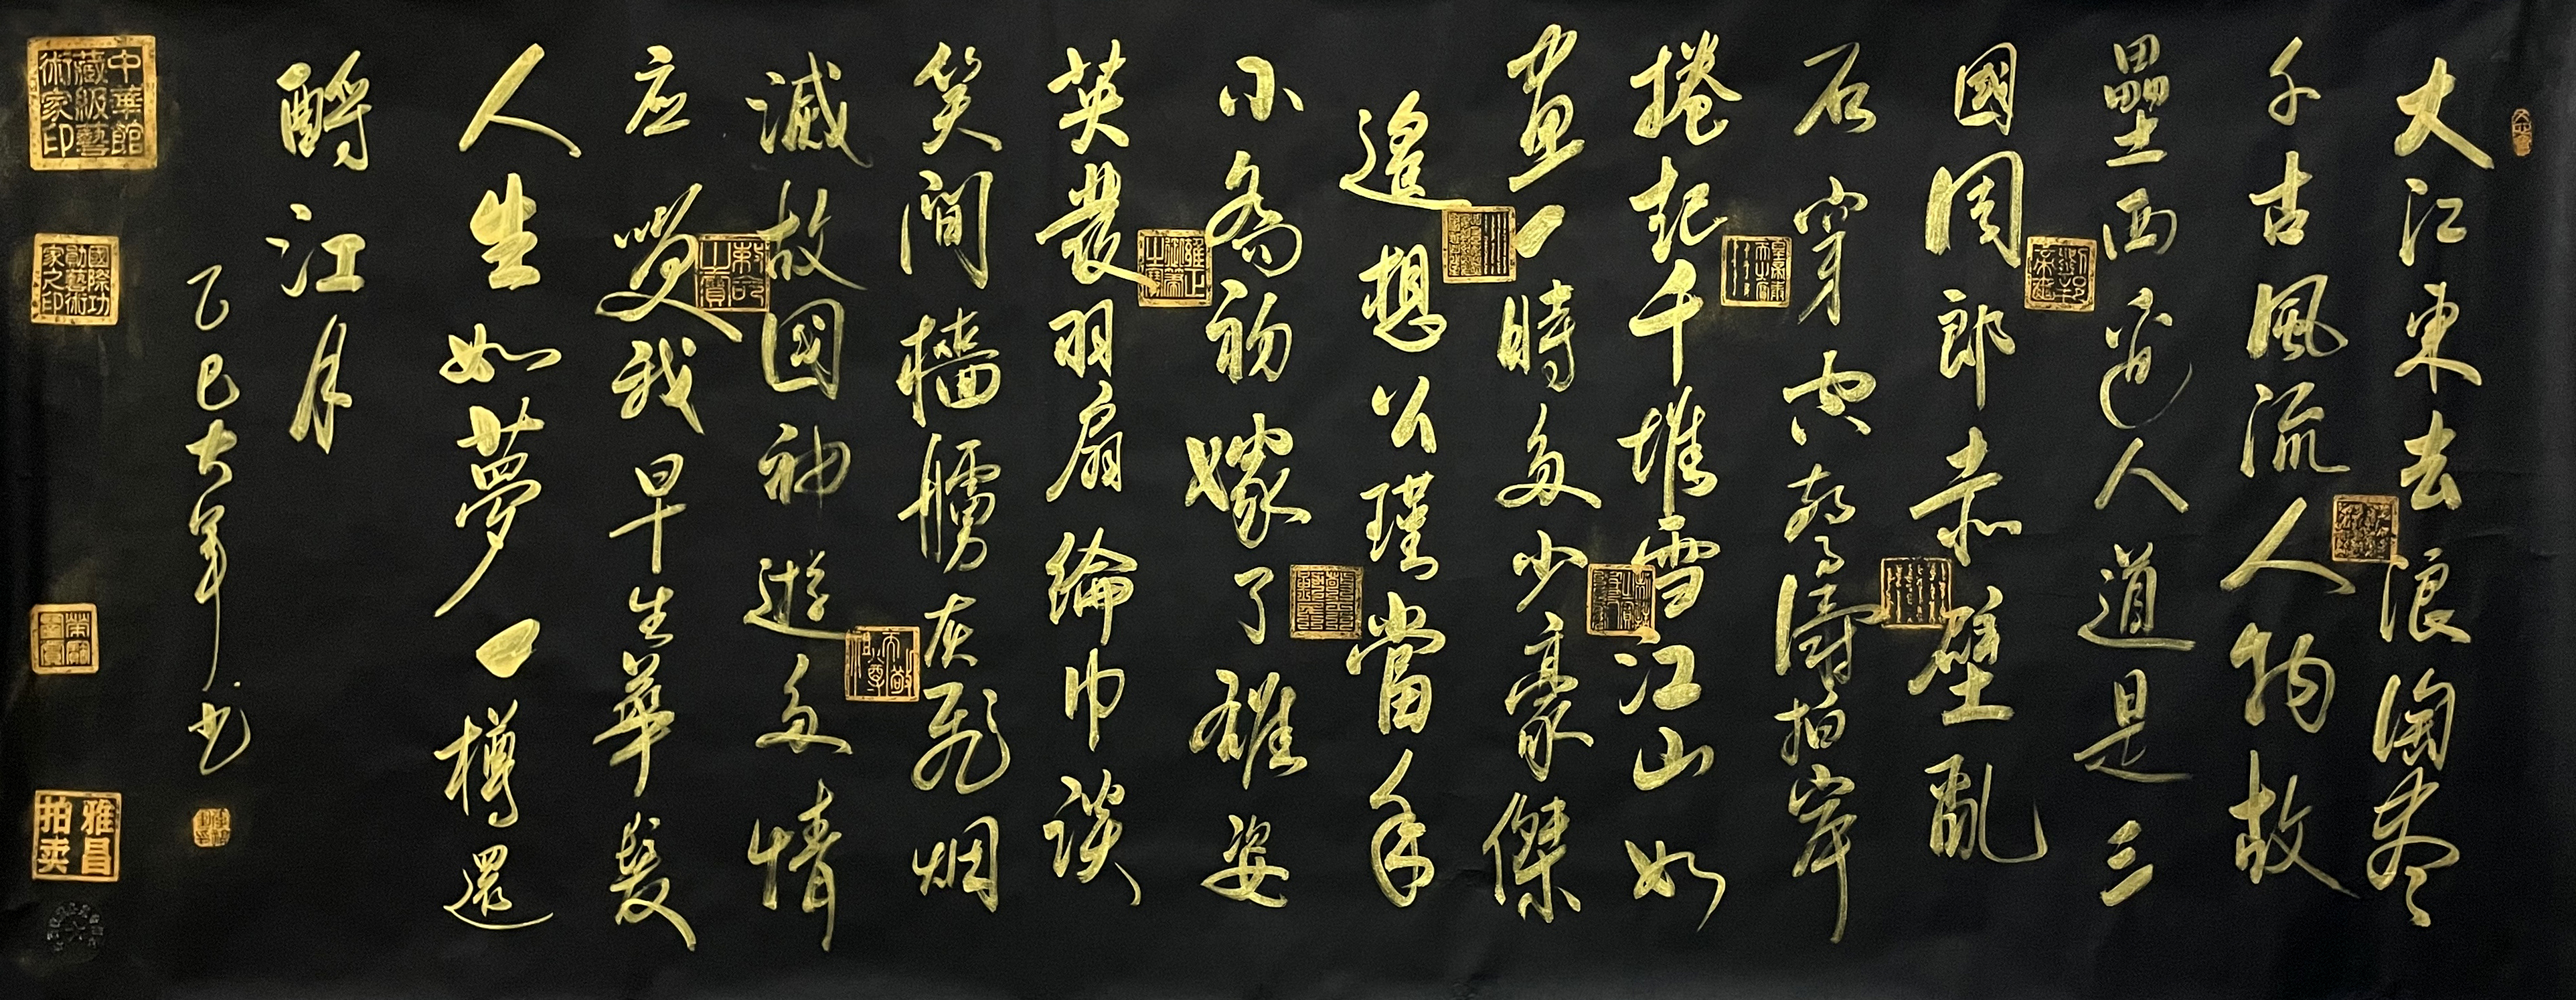 大江東去浪淘尽
千古風流人物故
壘西邊人道是三
國周郎赤壁乱
石穿空驚濤拍岸
捲起千堆雪江山如
畫一時多少豪傑
遙想公瑾當年
小喬初嫁了雄姿
英發羽扇綸巾談
笑間檣艣灰飛烟
滅故國神遊多情
应笑我早生華髮
人生如夢一樽還
酹江月
乙巳大年书
中華館
藏級藝
術家印
國際功
勛藝術
家之印
雅昌
拍卖